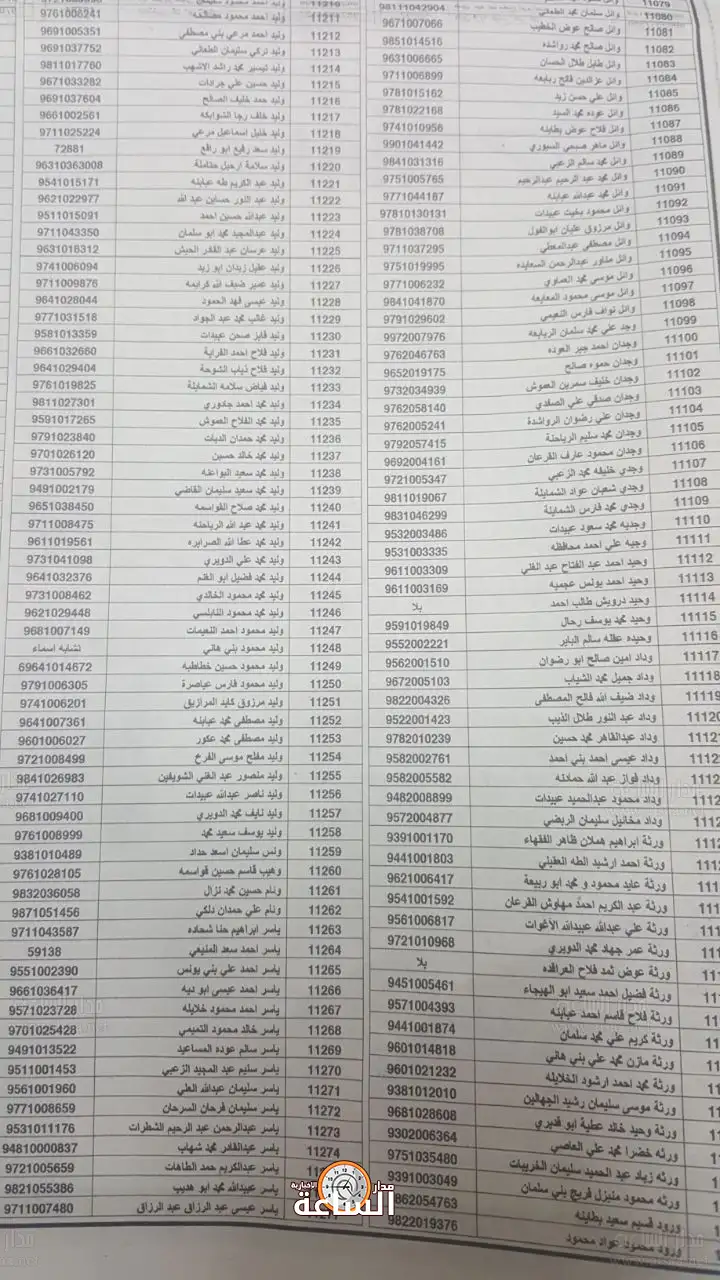 11079
11080 وائل سلمان محمد الطعاني 98111042904
11081 وائل صالح عوض الخطيب 9671007066
11082 وائل صالح محمد رواشده 9851014516
11083 وائل طايل طلال الحسان 9631006665
11084 وائل عزالدين فالح ربابعه 9711006899
11085 وائل علي حسن زيد 9781015162
11086 وائل عوده محمد السيد 9781022168
11087 وائل فلاح عوض بطاينه 9741010956
11088 وائل ماهر صبحي السيوري 9901041442
11089 وائل محمد سالم الزعبي 9841031316
11090 وائل محمد عبد الرحيم عبدالرحيم 9751005765
11091 وائل محمد عبدالله عبابنه 9771044187
11092 وائل محمود بخيت عبيدات 97810130131
11093 وائل مرزوق عليان ابوالفول 9781038708
11094 وائل مصطفى عبدالمعطي 9711037295
11095 وائل مناور عبدالرحمن السعايده 9751019995
11096 وائل موسى محمد العماوي 9771006232
11097 وائل موسى محمود المعايعه 9841041870
11098 وائل نواف فارس النعيمي 9791029602
11099 وجد علي محمد سلمان الربابعه 9972007976
11100 وجدان احمد جبر العوده 9762046763
11101 وجدان حموه صالح 9652019175
11102 وجدان خليف سمرين العموش 9732034939
11103 وجدان صدقي علي الصفدي 9762058140
11104 وجدان علي رضوان الرواشدة 9762005241
11105 وجدان محمد سليم الرياحنة 9792057415
11106 وجدان محمود عارف القرعان 9692004161
11107 وجدي خليفه محمد الزعبي 9721005347
11108 وجدي شعبان عواد الشمايلة 9811019067
11109 وجدي محمد فارس الشمايلة 9831046299
11110 وجديه محمد سعود عبيدات 9532003486
11111 وجيه علي احمد محافظه 9531003335
11112 وحيد احمد عبد الفتاح عبد الغني 9611003309
11113 وحيد احمد يونس عجميه 9611003169
11114 وحيد درويش طالب احمد بلا
11115 وحيد محمد يوسف رحال 9591019849
11116 وحيده عقله سالم الباير 9552002221
11117 وداد امين صالح ابو رضوان 9562001510
11118 وداد جميل محمد الشياب 9672005103
11119 وداد ضيف الله فالح المصطفى 9822004326
1112 وداد عبد النور طلال الذيب 9522001423
1112 وداد عبدالقاهر محمد حسين 9782010239
1112 وداد عيسى احمد بني احمد 9582002761
1112 وداد فواز عبد الله حمادنه 9582005582
1112 وداد محمود عبدالحميد عبيدات 9482008899
1112 وداد مخائيل سليمان الربضي 9572004877
1112 ورثة ابراهيم هملان ظاهر الفقهاء 9391001170
1112 ورثة احمد ارشيد الطه العقيلي 9441001803
111 ورثة عايد محمود و محمد ابو ربيعة 9621006417
111 ورثة عبد الكريم احمد مهاوش القرعان 9541001592
111 ورثة علي عبدالله عبيدالله الأغوات 9561006817
111 ورثة عمر جهاد محمد الدويري 9721010968
111 ورثة عوض ثمد فلاح العرافده بلا
11 ورثة فضيل احمد سعيد ابو الهيجاء 9451005461
11 ورثة فلاح قاسم احمد عبابنه 9571004393
11 ورثة كريم علي محمد سلمان 9441001874
11 ورثة مازن محمد علي بني هاني 9601014818
11 ورثة محمد احمد ارشود الخلايله 9601021232
11 ورثة موسى سليمان رشيد الجهالين 9381012010
1 ورثة وحيد خالد عطية ابو قديري 9681028608
1 ورثه خضرا محمد علي العاصي 9302006364
1 ورثه زياد عبد الحميد سليمان الخريبات 9751035480
1 ورثه محمود منيزل فريج بني سلمان 9391003049
ورود قسيم سعيد بطاينه 862054763
ورود محمود عواد محمود 9822019376
11210 وليد احمد محمود
11211 وليد احمد محمود مصالحه 9761006241
11212 وليد احمد مرعي بني مصطفى 9691005351
11213 وليد تركي سليمان الطعاني 9691037752
11214 وليد تيسير محمد راشد الاشهب 9811017760
11215 وليد حسين علي جرادات 9671033282
11216 وليد حمد خليف الصالح 9691037604
11217 وليد خلف رجا الشوابكه 9661002561
11218 وليد خليل اسماعيل مرعي 9711025224
11219 وليد سعد رفيع ابو رافع 72881
11220 وليد سلامة ارحيل حتاملة 96310363008
11221 وليد عبد الكريم طه عبابنه 9541015171
11222 وليد عبد النور حسان عبد الله 9621022977
11223 وليد عبدالله حسين احمد 9511015091
11224 وليد عبدالمجيد محمد ابو سلمان 9711043350
11225 وليد عرسان عبد القادر الحبش 9631018312
11226 وليد عقيل زيدان ابو زيد 9741006094
11227 وليد عمير ضيف الله كرايمه 9711009876
11228 وليد عيسى فهد الحمود 9641028044
11229 وليد غالب محمد عبد الجواد 9771031518
11230 وليد فايز صحن عبيدات 9581013359
11231 وليد فلاح احمد القراية 9661032660
11232 وليد فلاح ذياب الشوحة 9641029404
11233 وليد فياض سلامه الشمايلة 9761019825
11234 وليد محمد احمد جادوري 9811027301
11235 وليد محمد الفلاح العموش 9591017265
11236 وليد محمد حمدان الديات 9791023840
11237 وليد محمد خالد حسين 9701026120
11238 وليد محمد سعيد البواعنه 9731005792
11239 وليد محمد سعيد سليمان القاضي 9491002179
11240 وليد محمد صلاح القواسمه 9651038450
11241 وليد محمد عبد الله الرياحنه 9711008475
11242 وليد محمد عطا الله الصرايره 9611019561
11243 وليد محمد علي الدويري 9731041098
11244 وليد محمد فضيل ابو الغنم 9641032376
11245 وليد محمد محمود الخالدي 9731008462
11246 وليد محمد محمود النابلسي 9621029448
11247 وليد محمود احمد النعيمات 9681007149
11248 وليد محمود بني هاني تشابه اسماء
11249 وليد محمود حسين خطاطبه 69641014672
11250 وليد محمود فارس عياصرة 9791006305
11251 وليد مرزوق كايد المرازيق 9741006201
11252 وليد مصطفى محمد عبابنه 9641007361
11253 وليد مصطفى محمد عكور 9601006027
11254 وليد مفلح موسى الفرخ 9721008499
11255 وليد منصور عبد الغني الشويفين 9841026983
11256 وليد ناصر عبدالله عبيدات 9741027110
11257 وليد نايف محمد الدويري 9681009400
11258 وليد يوسف سعيد محمد 9761008999
11259 ونس سليمان اسعد حداد 9381010489
11260 وهيب قاسم حسين قواسمه 9761028105
11261 وئام حسين محمد نزال 9832036058
11262 وئام علي حمدان دلكي 9871051456
11263 ياسر ابراهيم حنا شحاده 9711043587
11264 ياسر احمد سعد المنيعي 59138
11265 ياسر احمد علي بني يونس 9551002390
11266 ياسر احمد عيسى ابو ديه 9661036417
11267 ياسر احمد محمود خلايله 9571023728
11268 ياسر خالد محمود التميمي 9701025428
11269 ياسر سالم عوده المساعيد 9491013522
11270 ياسر سليم عبد المجيد الزعبي 9511001453
11271 ياسر سليمان عبدالله العلي 9561001960
11272 ياسر سليمان فرحان السرحان 9771008659
11273 ياسر عبدالرحمن عبد الرحيم الشطرات 9531011176
11274 ياسر عبدالقادر محمد شهاب 94810000837
ياسر عبدالكريم حمد الطاهات 9721005659
ياسر عبيدالله محمد ابو هديب 9821055386
ياسر عيسى عبد الرزاق عبد الرزاق 9711007480
مدار الاخبارية
الساعة